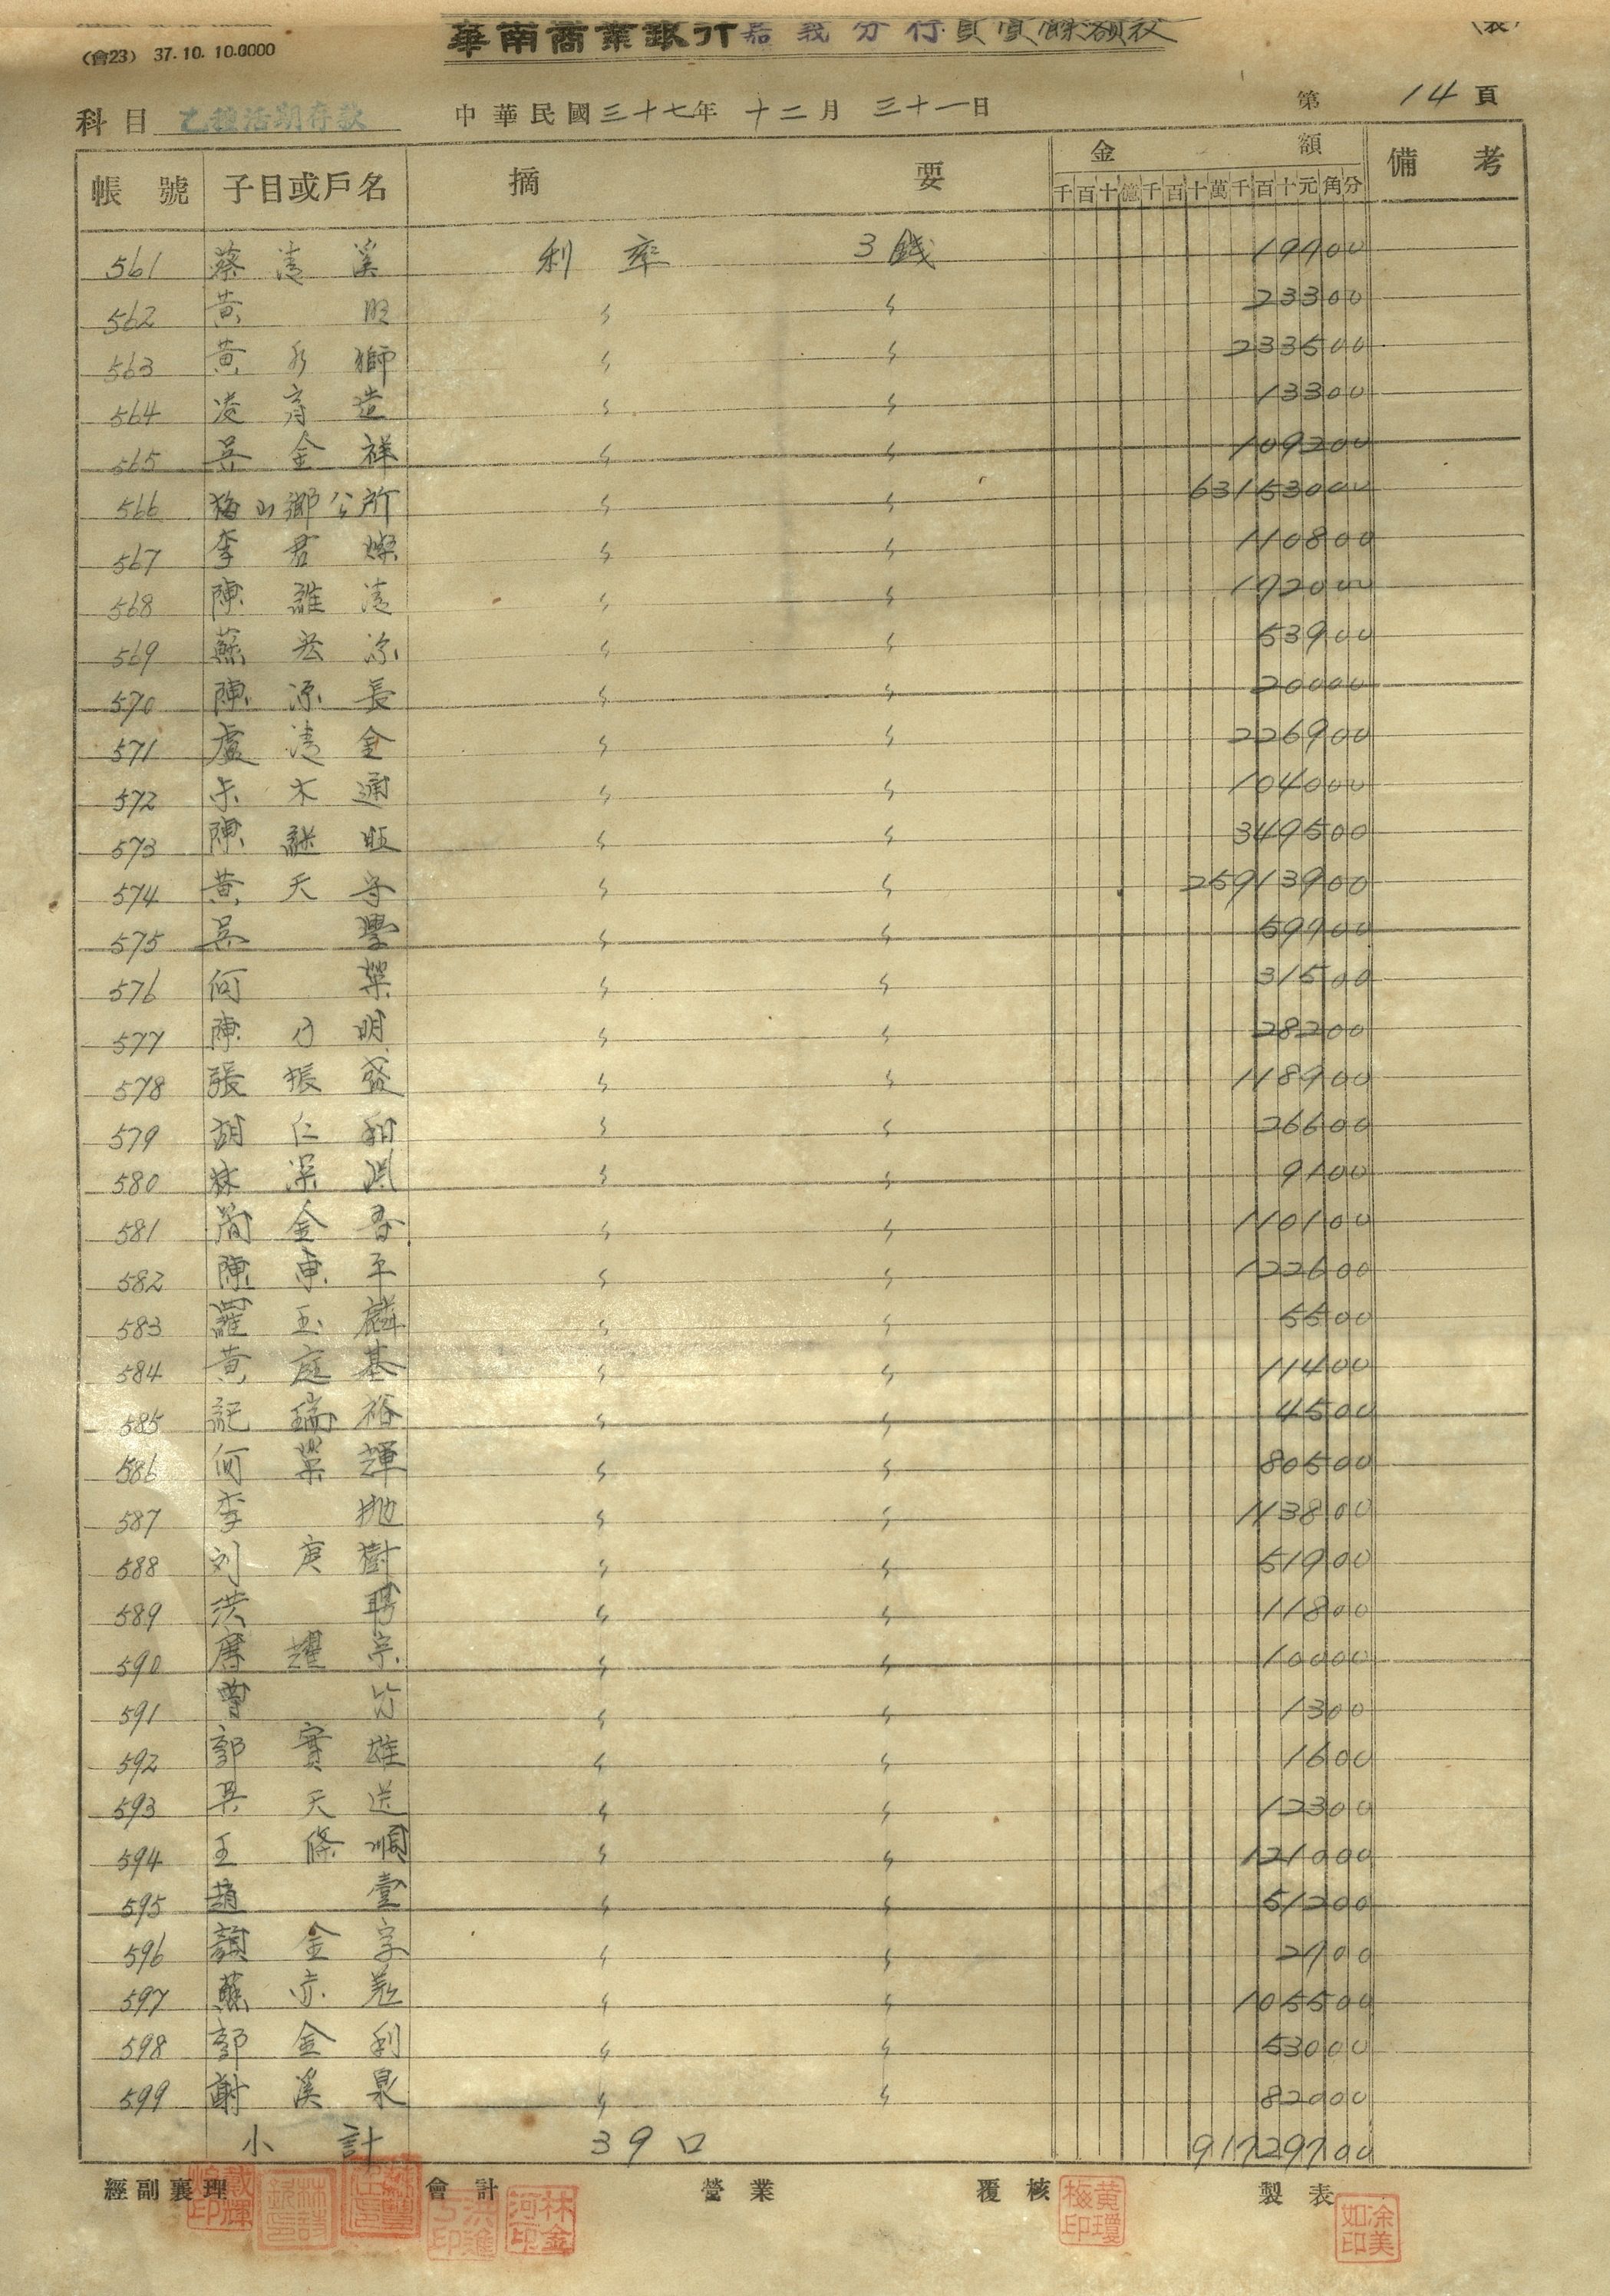 (會23) 37. 10. 10.0000
華南商業銀行嘉義分行負實餘額表 (表)
科目 乙種活期存款 中華民國三十七年 十二月 三十一日 第 14 頁
帳號 子目或戶名 摘要 金額 備考
千百十億千百十萬千百十元角分
561 蔡清溪 利率 3錢 19900
562 黃旺 〃 〃 23300
563 黃水獅 〃 〃 233500
564 凌育造 〃 〃 13300
565 吳金祥 〃 〃 109200
566 梅山鄉公所 〃 〃 63153000
567 李君燦 〃 〃 110800
568 陳維清 〃 〃 192000
569 蘇宏添 〃 〃 53900
570 陳添長 〃 〃 20000
571 盧清金 〃 〃 226900
572 朱木通 〃 〃 104000
573 陳謎旺 〃 〃 349500
574 黃天守 〃 〃 25913900
575 吳學 〃 〃 59900
576 何葉 〃 〃 31500
577 陳乃明 〃 〃 28200
578 張振盛 〃 〃 118900
579 胡仁和 〃 〃 26600
580 林深淵 〃 〃 9100
581 簡金吞 〃 〃 110100
582 陳東平 〃 〃 122600
583 羅玉麟 〃 〃 5500
584 黃庭基 〃 〃 11400
585 記瑞裕 〃 〃 4500
586 何葉輝 〃 〃 80500
587 李抛 〃 〃 113800
588 刘庚樹 〃 〃 51900
589 洪聘 〃 〃 11800
590 詹耀宗 〃 〃 10000
591 曾竹 〃 〃 1300
592 郭寶雄 〃 〃 1600
593 吳天送 〃 〃 12300
594 王條順 〃 〃 121000
595 趙臺 〃 〃 51200
596 顏金字 〃 〃 2900
597 蘇赤 〃 〃 105500
598 郭金利 〃 〃 53000
599 謝溪泉 〃 〃 82000
小計 39口 91729700
經副襄理 會計 營業 覆核 製表
林金河印 黃瓊極印 涂美如印